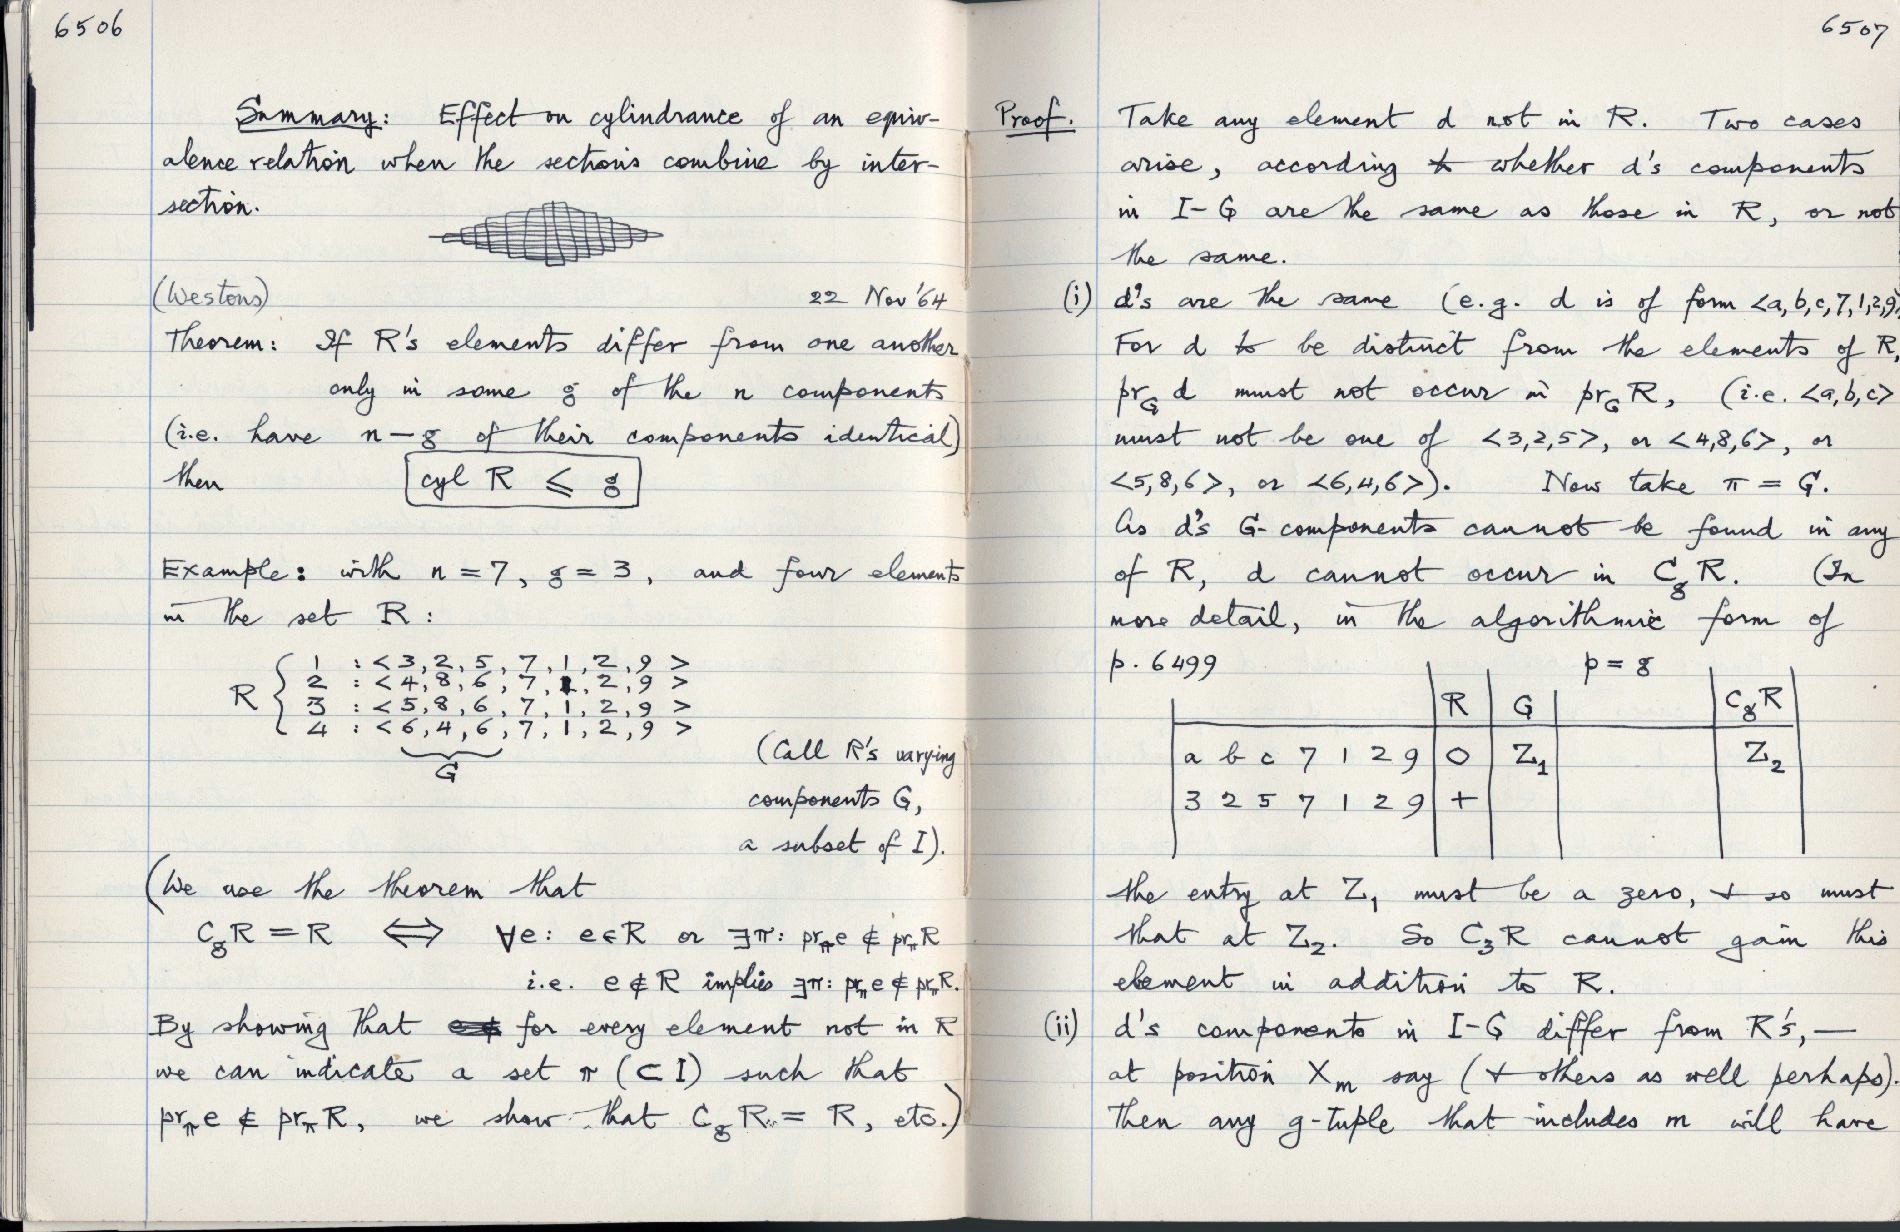 6506
Summary: Effect on cylindrance of an equiv-
alence relation when the sections combine by inter-
section.
(Westons) 22 Nov '64
Theorem: If R's elements differ from one another
only in some g of the n components
(i.e. have n-g of their components identical)
then cyl R ⩽ g
Example: with n = 7, g = 3, and four elements
in the set R:
R { 1 : <3,2,5,7,1,2,9>
2 : <4,8,6,7,1,2,9>
3 : <5,8,6,7,1,2,9>
4 : <6,4,6,7,1,2,9>
G
(Call R's varying
components G,
a subset of I).
(We use the theorem that
C_g R = R ⟺ ∀e: e∈R or ∃π: pr_π e ∉ pr_π R
i.e. e∉R implies ∃π: pr_π e ∉ pr_π R.
By showing that for every element not in R
we can indicate a set π (⊂ I) such that
pr_π e ∉ pr_π R, we show that C_g R = R, etc.)
6507
Proof. Take any element d not in R. Two cases
arise, according to whether d's components
in I-G are the same as those in R, or not
the same.
(i) d's are the same (e.g. d is of form <a,b,c,7,1,2,9>
For d to be distinct from the elements of R,
pr_G d must not occur in pr_G R, (i.e. <a,b,c>
must not be one of <3,2,5>, or <4,8,6>, or
<5,8,6>, or <6,4,6>). Now take π = G.
As d's G-components cannot be found in any
of R, d cannot occur in C_g R. (In
more detail, in the algorithmic form of
p. 6499 p = g
R G C_g R
a b c 7 1 2 9 0 Z₁ Z₂
3 2 5 7 1 2 9 +
the entry at Z₁ must be a zero, + so must
that at Z₂. So C₃R cannot gain this
element in addition to R.
(ii) d's components in I-G differ from R's, —
at position X_m say (+ others as well perhaps).
Then any g-tuple that includes m will have